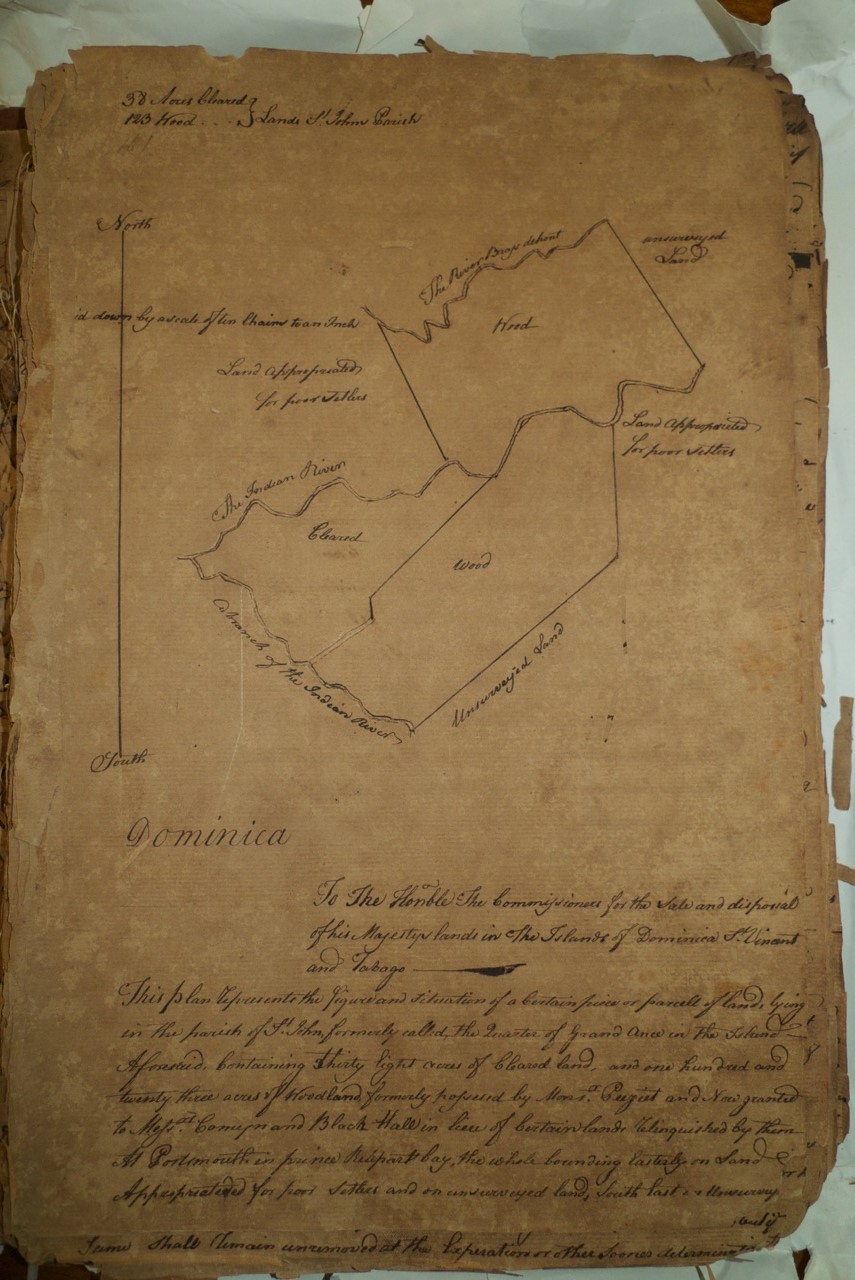 38 Acres Cleared }
123 Wood . . . } Lands St. Johns Parish
North
unsurveyed
Land
The River Brup dehort
id down by a scale of ten Chains to an Inch
Wood
Land appropriated
for poor Settlers
Land Appropriated
for poor Settlers
The Indian River
Cleared
Wood
A branch of the Indian River
Unsurveyed Land
South
Dominica
To The Honble The Commissioners for the Sale and disposal
of his Majestys lands in The Islands of Dominica St. Vincent
and Tabago
This plan Represents the figure and Situation of a Certain piece or parcell of land, lying
in the parish of St. John, formerly called, the Quarter of Grand Ance in the Island
Aforesaid, Containing thirty Eight acres of Cleared land, and one hundred and
twenty three acres of Woodland, formerly possessed by Monsr. Puguet and Now granted
to Messrs. Comyn and Black Hall in lieu of Certain lands Relinquished by them
At Portsmouth in prince Ruperts bay, the whole bounding Easterly on Land
Appropriateded for poor Settlers and on unsurveyed land, South East on Unsurvey
Same Shall Remain unremoved at the Experation or other Sooner determinati